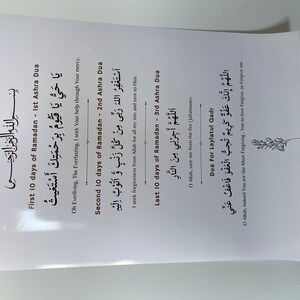 بسم الله الرحمن الرحيم
First 10 days of Ramadan - 1st Ashra Dua
يَا حَيُّ يَا قَيُّومُ بِرَحْمَتِكَ أَسْتَغِيثُ
Oh Everliving, The Everlasting, I seek Your help through Your mercy.
Second 10 days of Ramadan - 2nd Ashra Dua
أَسْتَغْفِرُ اللهَ رَبِّي مِنْ كُلِّ ذَنْبٍ وَّ أَتُوبُ إِلَيْهِ
I seek forgiveness from Allah for all my sins and turn to Him.
Last 10 days of Ramadan - 3rd Ashra Dua
اَللَّهُمَّ أَجِرْنِي مِنَ النَّارِ
O Allah, save me from the fire (Jahannam).
Dua For Laylatul Qadr
اللَّهُمَّ إِنَّكَ عَفُوٌّ كَرِيمٌ تُحِبُّ الْعَفْوَ فَاعْفُ عَنِّي
O Allah, indeed You are the Most Forgiving. You love Forgive, so Forgive me.